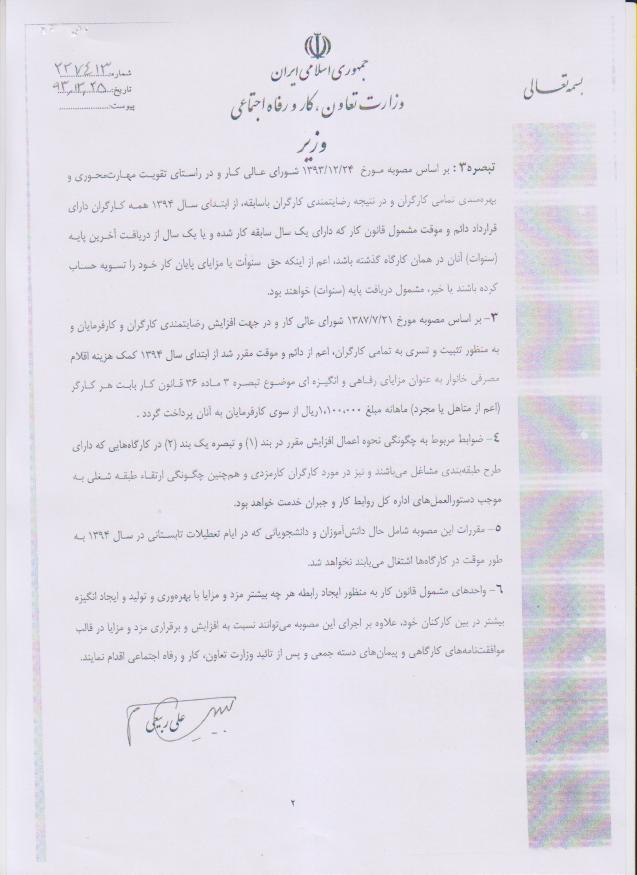 بسمه تعالی
جمهوری اسلامی ایران
وزارت تعاون، کار و رفاه اجتماعی
وزیر
شماره: ۲۳۷۴۱۳
تاریخ: ۹۳،۱۲،۲۵
پیوست:
تبصره۳: بر اساس مصوبه مورخ ۱۳۹۳/۱۲/۲۴ شورای عالی کار و در راستای تقویت مهارت‌محوری و
بهره‌مندی تمامی کارگران و در نتیجه رضایتمندی کارگران باسابقه، از ابتدای سال ۱۳۹۴ همه کارگران دارای
قرارداد دائم و موقت مشمول قانون کار که دارای یک سال سابقه کار شده و یا یک سال از دریافت آخرین پایه
(سنوات) آنان در همان کارگاه گذشته باشد، اعم از اینکه حق سنوات یا مزایای پایان کار خود را تسویه حساب
کرده باشند یا خیر، مشمول دریافت پایه (سنوات) خواهند بود.
۳- بر اساس مصوبه مورخ ۱۳۸۷/۷/۲۱ شورای عالی کار و در جهت افزایش رضایتمندی کارگران و کارفرمایان و
به منظور تثبیت و تسری به تمامی کارگران، اعم از دائم و موقت مقرر شد از ابتدای سال ۱۳۹۴ کمک هزینه اقلام
مصرفی خانوار به عنوان مزایای رفاهی و انگیزه ای موضوع تبصره ۳ ماده ۳۶ قانون کار بابت هر کارگر
(اعم از متاهل یا مجرد) ماهانه مبلغ ۱،۱۰۰،۰۰۰ریال از سوی کارفرمایان به آنان پرداخت گردد .
۴- ضوابط مربوط به چگونگی نحوه اعمال افزایش مقرر در بند (۱) و تبصره یک بند (۲) در کارگاه‌هایی که دارای
طرح طبقه‌بندی مشاغل می‌باشند و نیز در مورد کارگران کارمزدی و هم‌چنین چگونگی ارتقاء طبقه شغلی به
موجب دستورالعمل‌های اداره کل روابط کار و جبران خدمت خواهد بود.
۵- مقررات این مصوبه شامل حال دانش‌آموزان و دانشجویانی که در ایام تعطیلات تابستانی در سال ۱۳۹۴ به
طور موقت در کارگاه‌ها اشتغال می‌یابند نخواهد شد.
۶- واحدهای مشمول قانون کار به منظور ایجاد رابطه هر چه پیشتر مزد و مزایا با بهره‌وری و تولید و ایجاد انگیزه
بیشتر در بین کارکنان خود، علاوه بر اجرای این مصوبه می‌توانند نسبت به افزایش و برقراری مزد و مزایا در قالب
موافقت‌نامه‌های کارگاهی و پیمان‌های دسته جمعی و پس از تائید وزارت تعاون، کار و رفاه اجتماعی اقدام نمایند.
علی ربیعی
۲